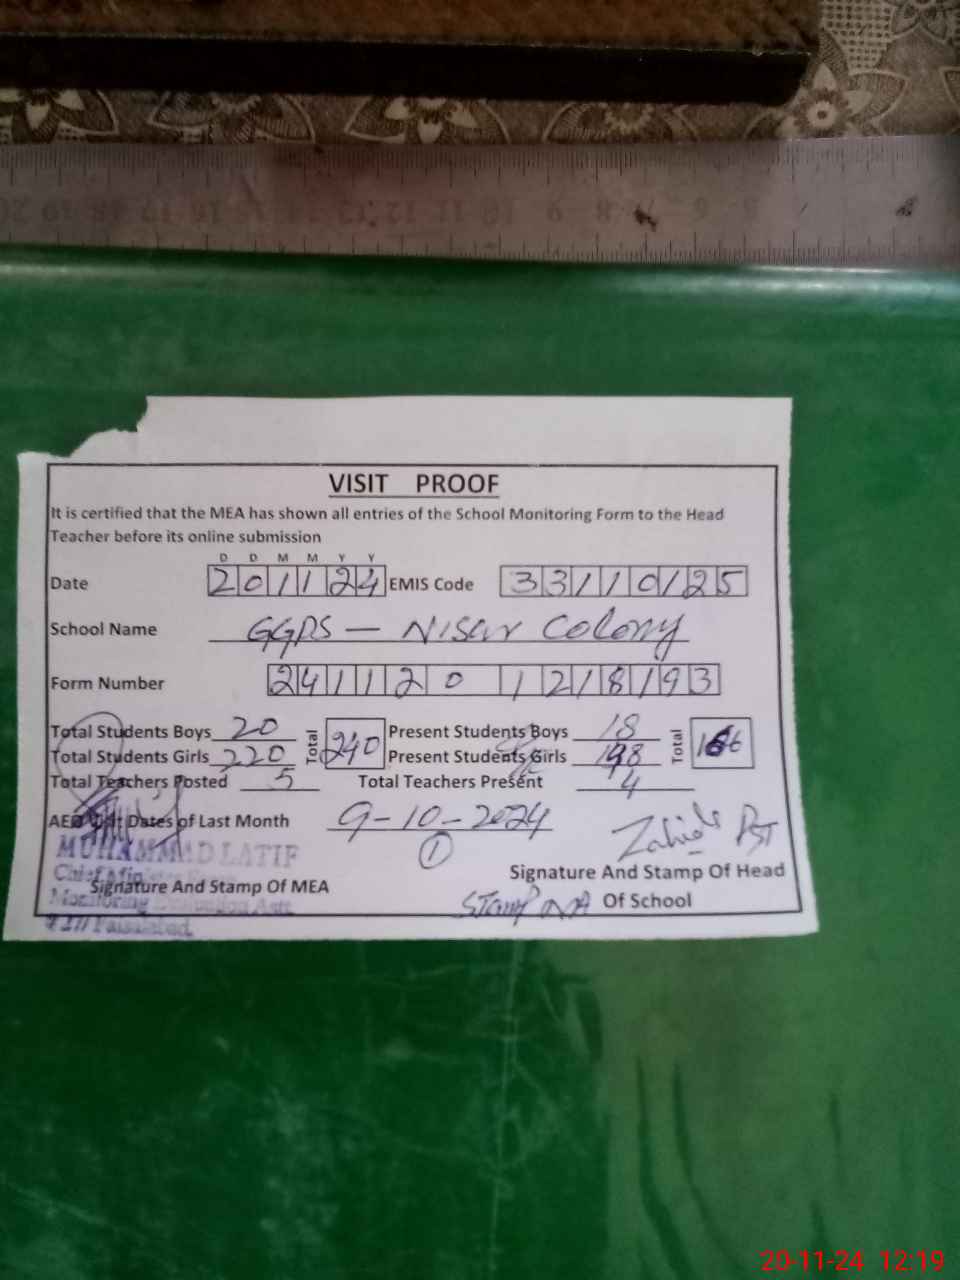 VISIT PROOF
It is certified that the MEA has shown all entries of the School Monitoring Form to the Head
Teacher before its online submission
D D M M Y Y
Date 201124 EMIS Code 33110125
School Name GGPS - Nisar Colony
Form Number 241120 1218193
Total Students Boys 20 Total 240 Present Students Boys 18 Total
Total Students Girls 220 Present Students Girls
Total Teachers Posted 5 Total Teachers Present 4
AEO Visit Dates of Last Month 9-10-2024
1
Zahida PST
MUHAMMAD LATIF
Signature And Stamp Of MEA
Signature And Stamp Of Head
Of School
Stamp NA
Monitoring Evaluation Astt
Faisalabad
20-11-24 12:19